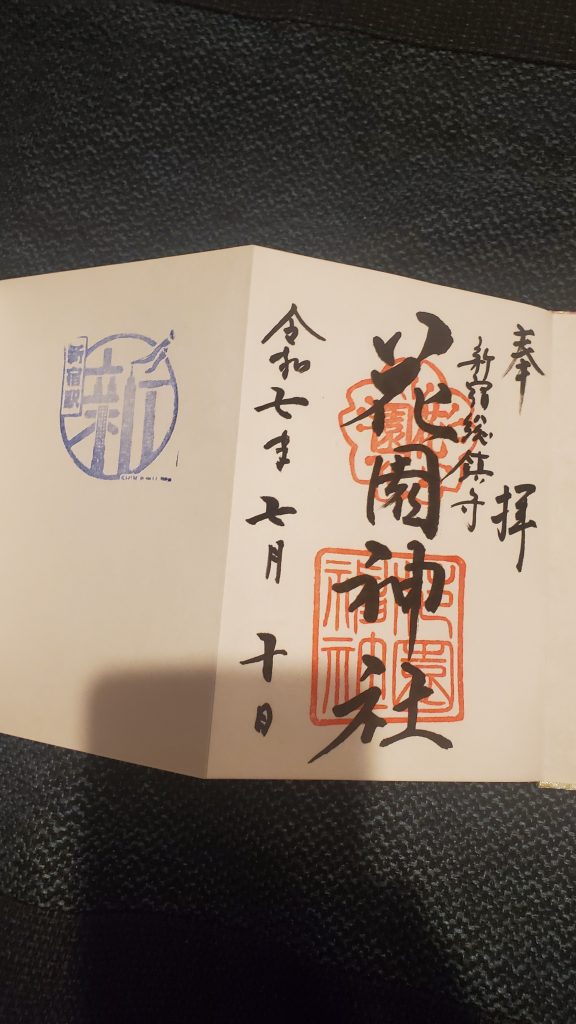 奉拝
新宿総鎮守
花園神社
花園
花園神社
令和七年七月十日
新宿駅
新